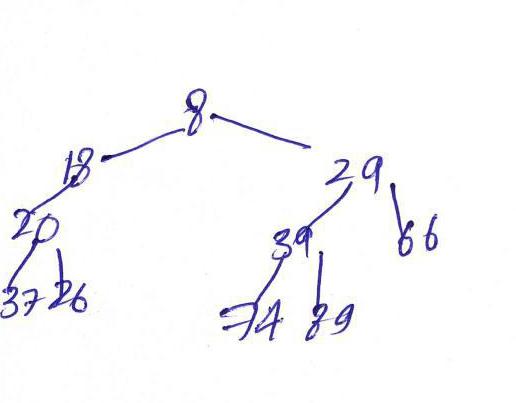 8
18 29
20 39 66
37 26 74 89